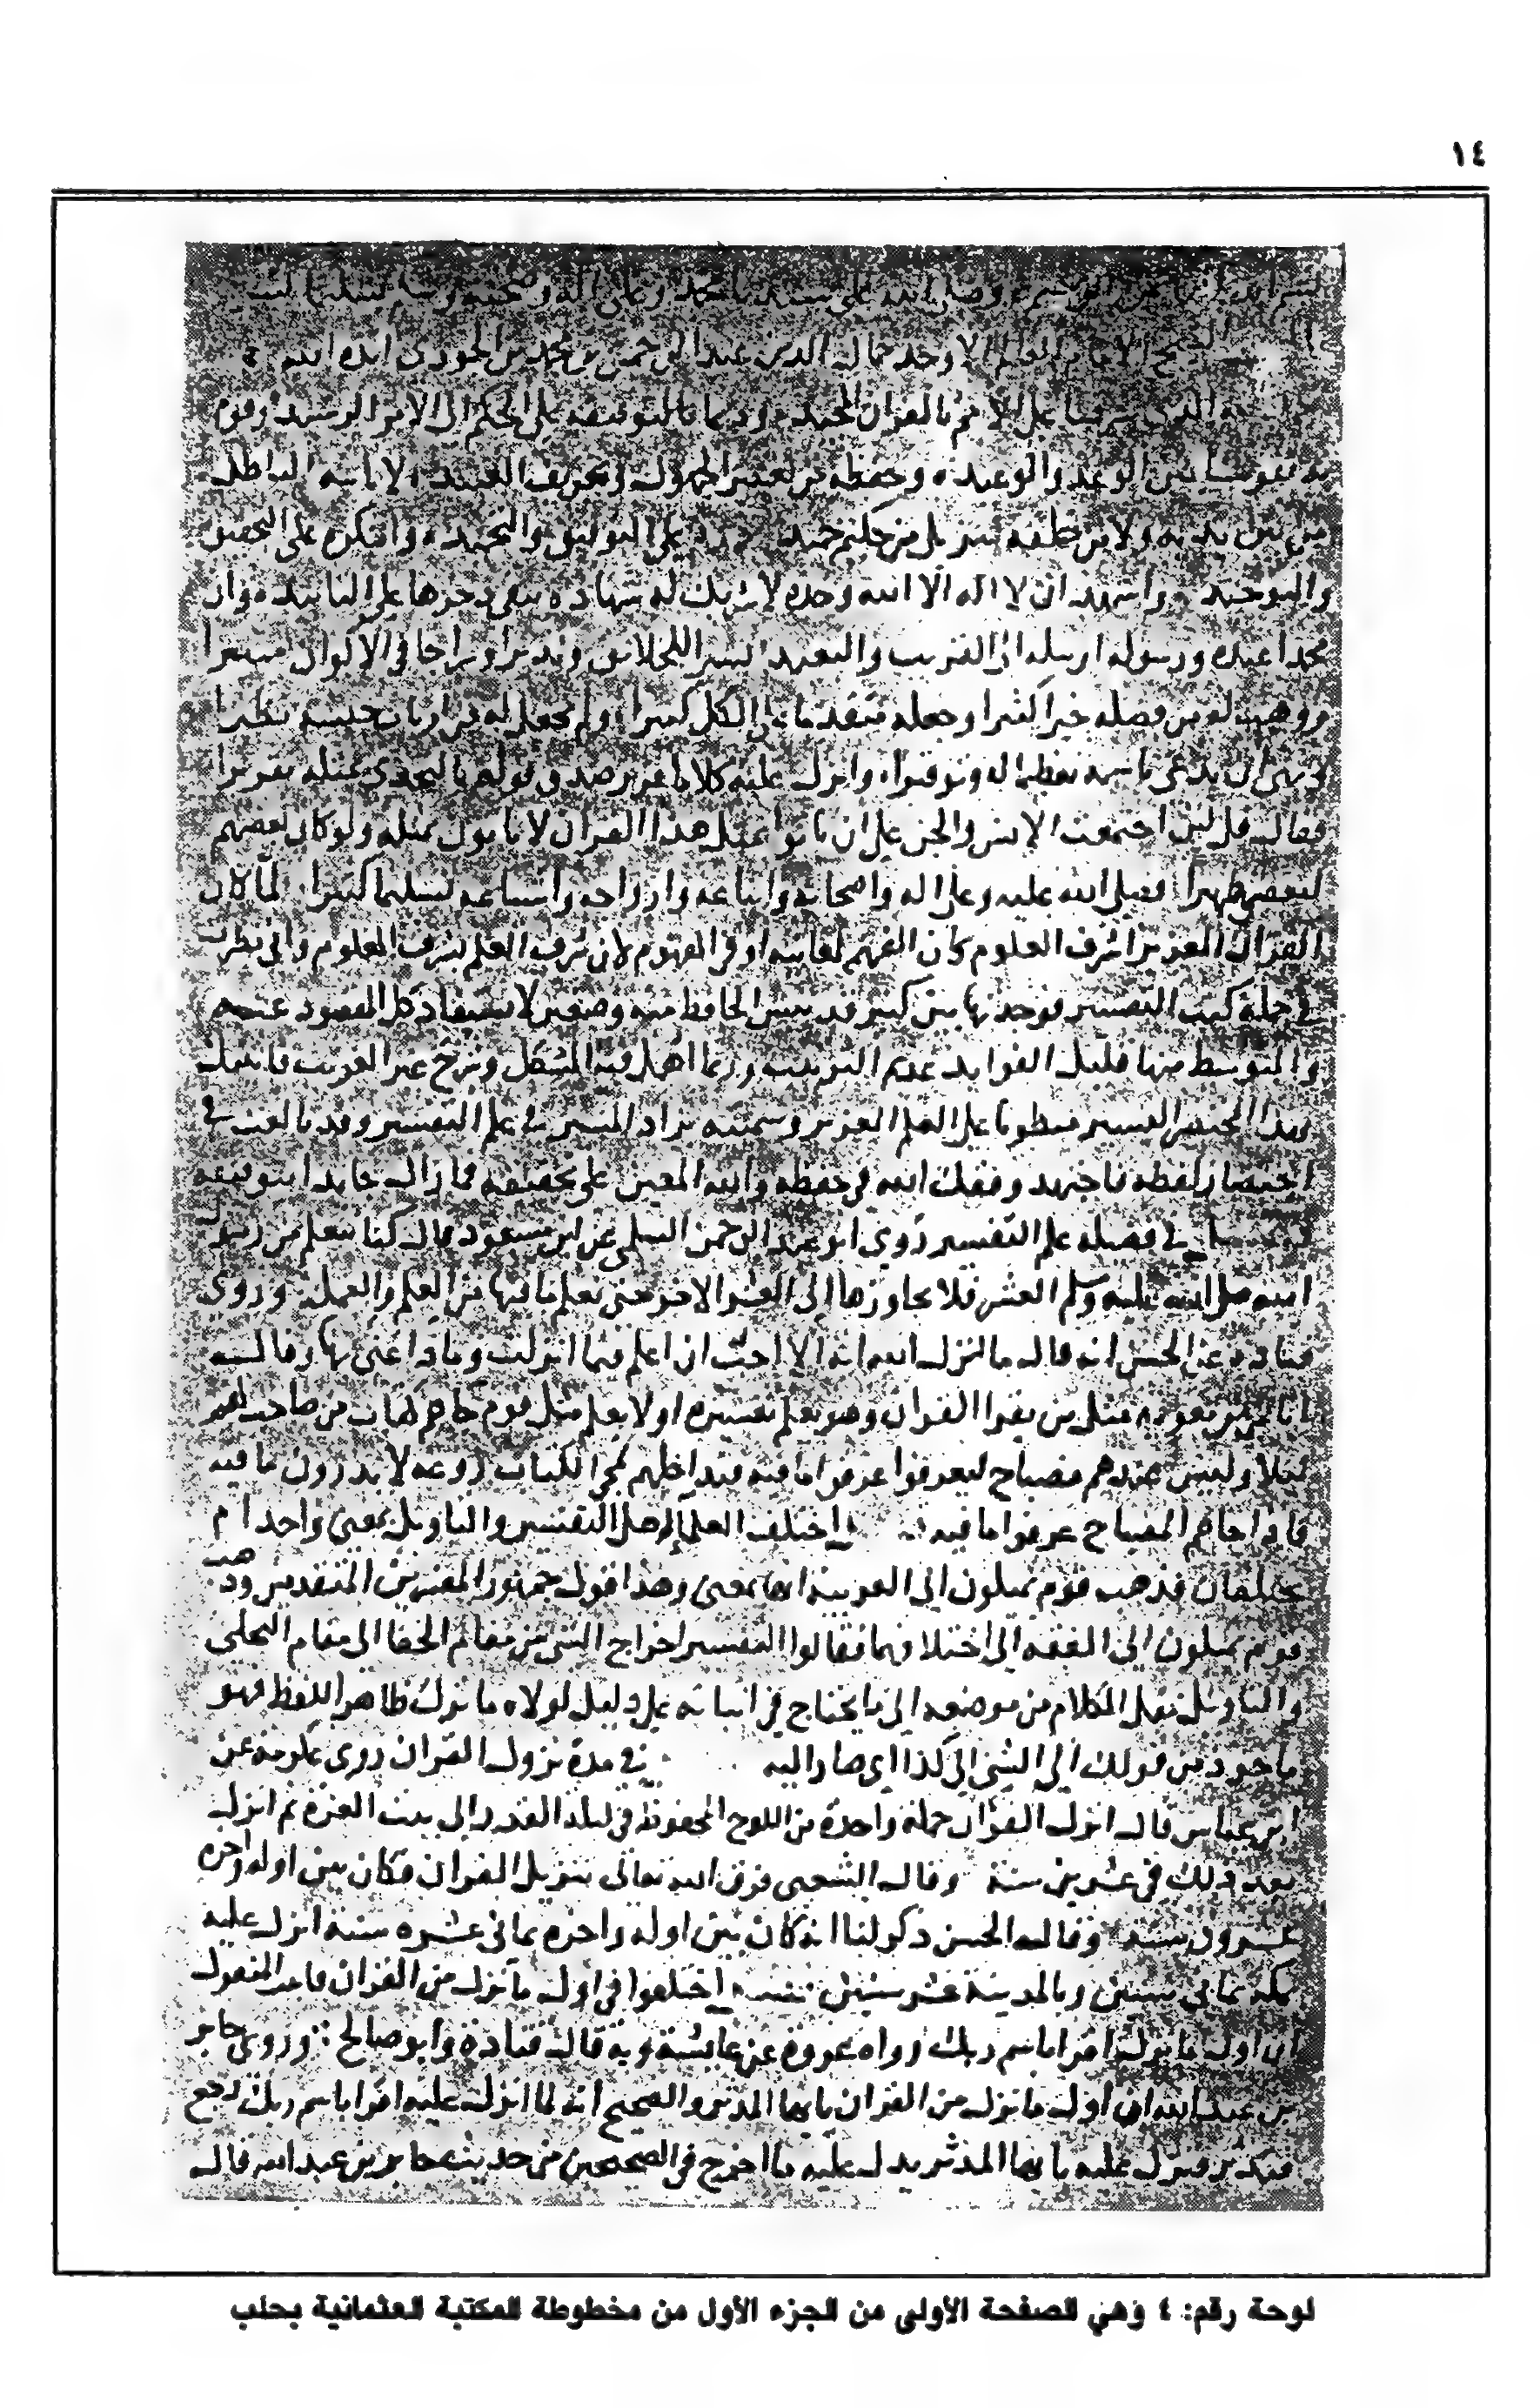 ١٤
بسم الله الرحمن الرحيم وصلى الله على سيدنا محمد وعلى اله وصحبه وسلم تسليما
الشيخ الامام العالم الاوحد جمال الدين عبد الرحمن بن محمد بن الجوزي ايده الله
الذي شرفنا على الامم بالقران المجيد ودعانا بالتوفيقه على الحكم الى الامر الرشيد وقوم
به نفوسنا بين الوعد والوعيد وحفظه من تغيير الجهول وتحريف العنيد لا ياتيه الباطل
من بين يديه ولا من خلفه تنزيل من حكيم حميد على التوفيق والتحميد واشكره على التحقيق
والتوحيد واشهد ان لا اله الا الله وحده لا شريك له شهادة يبقى ذخرها على التابيد وان
محمدا عبده ورسوله ارسله الى القريب والبعيد بشيرا للخلائق ونذيرا وسراجا في الاكوان منيرا
ووهب له من فضله خيرا كثيرا وجعله مقدما على الكل كبيرا ولم يجعل له من ارباب جنسه نظيرا
ونهى ان يدعى باسمه تعظيما له وتوقيرا وانزل عليه كلاما قرر صدق قوله بالتحدي بمثله تقريرا
فقال قل لين اجتمعت الانس والجن على ان ياتوا بمثل هذا القران لا ياتون بمثله ولو كان بعضهم
لبعض ظهيرا فصلى الله عليه وعلى اله واصحابه واتباعه وازواجه واشياعه تسليما كثيرا لما كان
القران العزيز اشرف العلوم كان الفهم لمعانيه اوفى الفهوم لان شرف العلم بشرف المعلوم واني نظرت
في جملة كتب التفسير فوجدتها بين كبير قد يئس الحافظ منه وصغير لا يستفاد كل المقصود عنه
والمتوسط منها قليل الفوايد عديم الترتيب وربما اهمل فيه المشكل وشرح غير الغريب فاتيتك
بهذا المختصر اليسير منطويا على العلم الغزير وسميته بزاد المسير في علم التفسير وقد بالغت في
اختصار لفظه فاجتهد وفقك الله في حفظه والله المعين على تحقيقه فما زال جايدا بتوفيقه
في فضيلة علم التفسير روى ابو عبد الرحمن السلمي عن ابن مسعود قال كنا نتعلم من رسول
الله صلى الله عليه وسلم العشر فلا نجاوزها الى العشر الاخر حتى نعلم ما فيها من العلم والعمل وروى
قتادة عن الحسن انه قال ما انزل الله اية الا احب ان اعلم فيما انزلت وماذا عنى بها وقال
اياس بن معويه مثل من يقرا القران وهو يعلم تفسيره او لا يعلم مثل قوم جاهم كتاب من صاحب لهم
ليلا وليس عندهم مصباح ليعرفوا عرفوا ما فيه فتداخلهم لمجي الكتاب روعه لا يدرون ما فيه
فاذا جاهم المصباح عرفوا ما فيه اختلف العلما هل التفسير والتاويل بمعنى واحد ام
يختلفان فذهب قوم يميلون الى العربية انهما بمعنى وهذا قول جمهور المفسرين المتقدمين وذهب
قوم يميلون الى الفقه الى اختلافهما فقالوا التفسير اخراج الشي من مقام الخفا الى مقام التجلي
والتاويل نقل الكلام من موضعه الى ما يحتاج في اثباته على دليل لولاه ما ترك ظاهر اللفظ فهو
ماخوذ من قولك ال الشي الى كذا اي صار اليه في مدة نزول القران روى عكرمه عن
ابن عباس قال انزل القران جملة واحدة من اللوح المحفوظ في ليلة القدر الى بيت العزة ثم انزل
بعد ذلك في عشرين سنة وقال الشعبي فرق الله تعالى تنزيل القران فكان بين اوله واخره
عشرون سنة وقال الحسن ذكر لنا انه كان بين اوله واخره ثماني عشره سنة انزل عليه
بمكة ثماني سنين وبالمدينة عشر سنين اختلفوا في اول ما نزل من القران فاثبت المنقول
ان اول ما نزل اقرا باسم ربك رواه عروة عن عايشة وبه قال قتادة وابو صالح وروى جابر
بن عبد الله ان اول ما نزل من القران يا ايها المدثر والصحيح انه لما انزل عليه اقرا باسم ربك رجع
فتدثر فنزل عليه يا ايها المدثر يدل عليه ما اخرج في الصحيحين من حديث جابر بن عبد الله قال
لوحة رقم: ٤ وهي الصفحة الأولى من الجزء الأول من مخطوطة المكتبة العثمانية بحلب